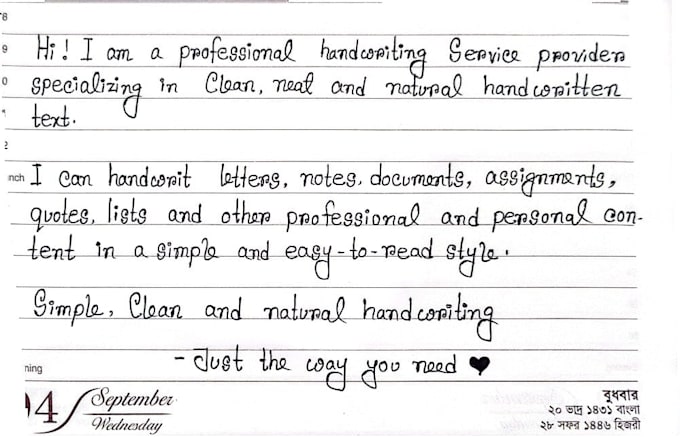 8
9
Hi! I am a professional handwriting Service provider
0
specializing in Clean, neat and natural handwritten
text.
2
nch
I can handwrit letters, notes, documents, assignments,
quotes, lists and other professional and personal con-
tent in a simple and easy-to-read style.
Simple, Clean and natural handwriting
ning
- Just the way you need ♥
04 September
Wednesday
বুধবার
২০ ভাদ্র ১৪৩১ বাংলা
২৮ সফর ১৪৪৬ হিজরী